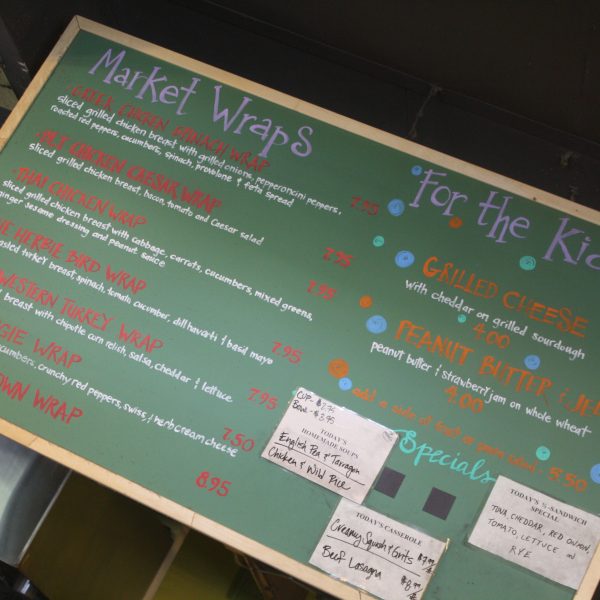 Market Wraps
GREEK CHICKEN SPINACH WRAP
sliced grilled chicken breast with grilled onions, pepperoncini peppers,
roasted red peppers, cucumbers, spinach, provolone & feta spread
7.95
CHICKEN CAESAR WRAP
sliced grilled chicken breast, bacon, tomato and Caesar salad
7.95
THAI CHICKEN WRAP
sliced grilled chicken breast with cabbage, carrots, cucumbers, mixed greens,
ginger sesame dressing and peanut sauce
7.95
HERBIE BIRD WRAP
turkey breast, spinach, tomato, cucumber, dill havarti & basil mayo
7.95
WESTERN TURKEY WRAP
breast with chipotle corn relish, salsa, cheddar & lettuce
7.95
WRAP
cucumbers, crunchy red peppers, swiss, & herb cream cheese
7.50
WRAP
8.95
For the Kid
GRILLED CHEESE
with cheddar on grilled sourdough
4.00
PEANUT BUTTER & JE
peanut butter & strawberry jam on whole wheat
4.00
add a side of fruit or green salad - 3.50
Specials
CUP-
BOWL - $3.95
TODAY'S
HOMEMADE SOUPS
English Pea & Tarragon
Chicken & Wild Rice
TODAY'S CASSEROLE
Creamy Squash & Grits
Beef Lasagna
TODAY'S ½ SANDWICH
SPECIAL
TUNA, CHEDDAR, RED ONION,
TOMATO, LETTUCE on
RYE